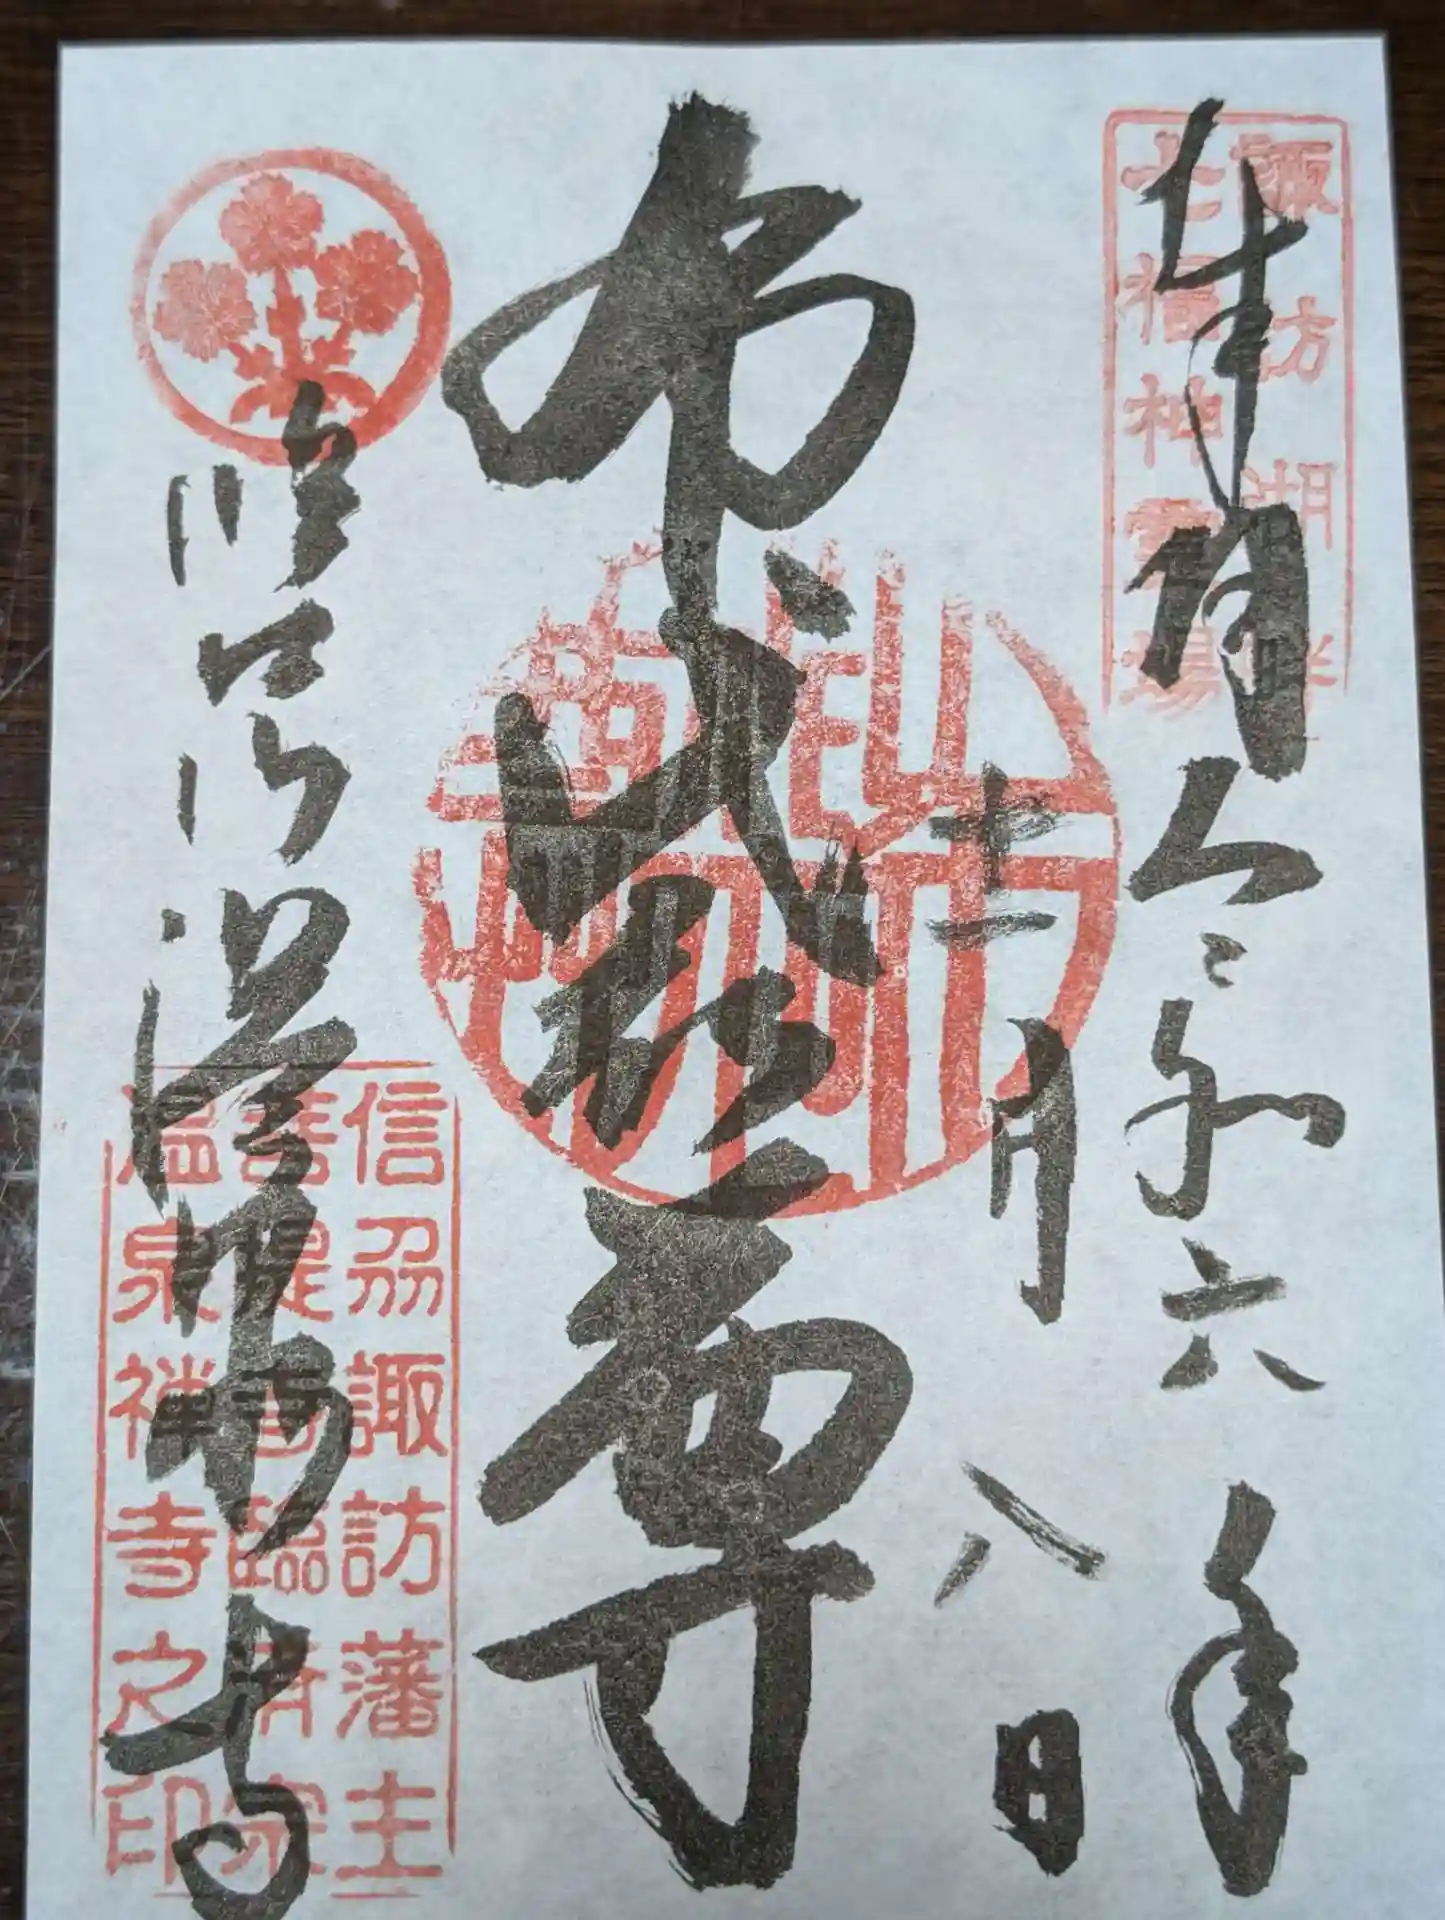 諏訪湖畔
七福神霊場
奉拝
令和六年
十一月八日
布袋尊
臨江山温泉寺
信刕諏訪藩主
菩提寺臨済宗
温泉禅寺之印